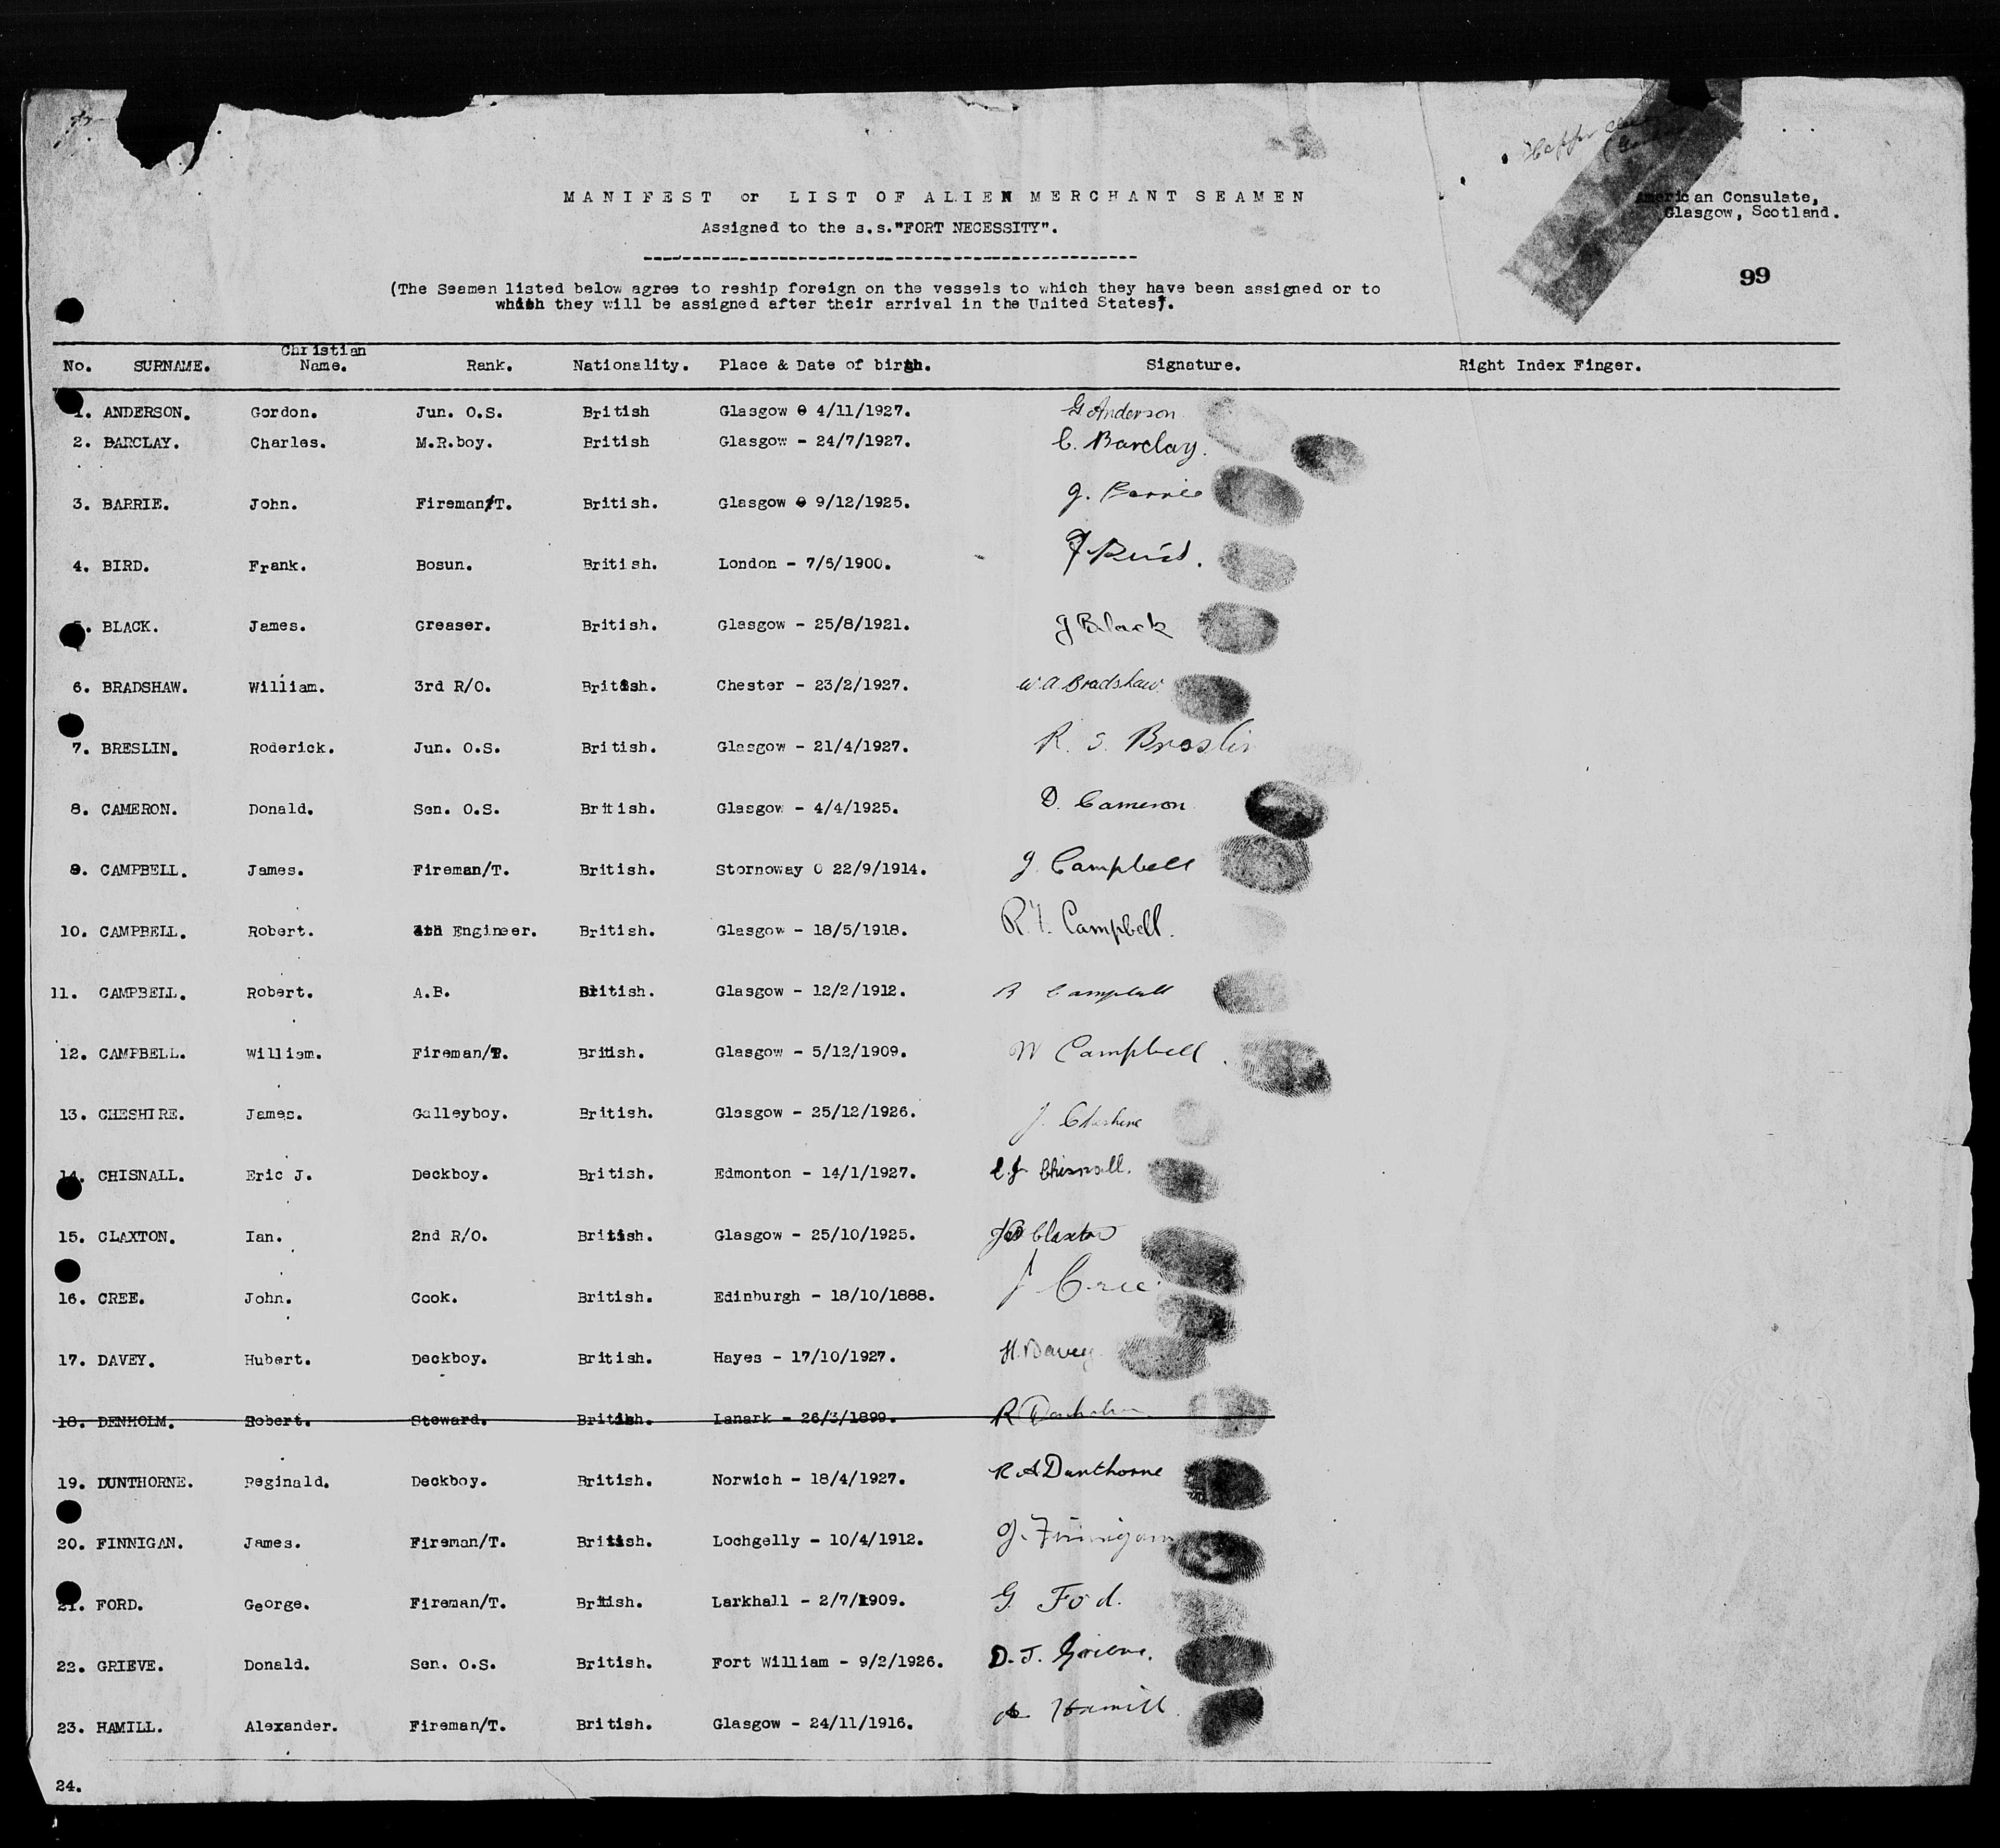 MANIFEST or LIST OF ALIEN MERCHANT SEAMEN
American Consulate,
Glasgow, Scotland.
Assigned to the s.s."FORT NECESSITY".
99
(The Seamen listed below agree to reship foreign on the vessels to which they have been assigned or to
which they will be assigned after their arrival in the United States).
No. SURNAME. Christian Name. Rank. Nationality. Place & Date of birth. Signature. Right Index Finger.
1. ANDERSON. Gordon. Jun. O.S. British Glasgow 0 4/11/1927. G Anderson
2. BARCLAY. Charles. M.R.boy. British Glasgow - 24/7/1927. C. Barclay.
3. BARRIE. John. Fireman/T. British. Glasgow 0 9/12/1925. J. Barrie
4. BIRD. Frank. Bosun. British. London - 7/5/1900. F Bird.
5. BLACK. James. Greaser. British. Glasgow - 25/8/1921. J Black
6. BRADSHAW. William. 3rd R/O. British. Chester - 23/2/1927. W.A. Bradshaw.
7. BRESLIN. Roderick. Jun. O.S. British. Glasgow - 21/4/1927. R. S. Breslin
8. CAMERON. Donald. Sen. O.S. British. Glasgow - 4/4/1925. D. Cameron
9. CAMPBELL. James. Fireman/T. British. Stornoway 0 22/9/1914. J. Campbell
10. CAMPBELL. Robert. 4th Engineer. British. Glasgow - 18/5/1918. R. T. Campbell.
11. CAMPBELL. Robert. A.B. British. Glasgow - 12/2/1912. R Campbell
12. CAMPBELL. William. Fireman/T. British. Glasgow - 5/12/1909. W Campbell.
13. CHESHIRE. James. Galleyboy. British. Glasgow - 25/12/1926. J. Cheshire
14. CHISNALL. Eric J. Deckboy. British. Edmonton - 14/1/1927. E.J. Chisnall.
15. CLAXTON. Ian. 2nd R/O. British. Glasgow - 25/10/1925. Claxton
16. CREE. John. Cook. British. Edinburgh - 18/10/1888. J Cree
17. DAVEY. Hubert. Deckboy. British. Hayes - 17/10/1927. H. Davey
18. DENHOLM. Robert. Steward. British. Lanark - 26/3/1899. R Denholm
19. DUNTHORNE. Reginald. Deckboy. British. Norwich - 18/4/1927. R A Dunthorne
20. FINNIGAN. James. Fireman/T. British. Lochgelly - 10/4/1912. J. Finnigan
21. FORD. George. Fireman/T. British. Larkhall - 2/7/1909. G. Ford.
22. GRIEVE. Donald. Sen. O.S. British. Fort William - 9/2/1926. D. J. Grieve.
23. HAMILL. Alexander. Fireman/T. British. Glasgow - 24/11/1916. A Hamill
24.